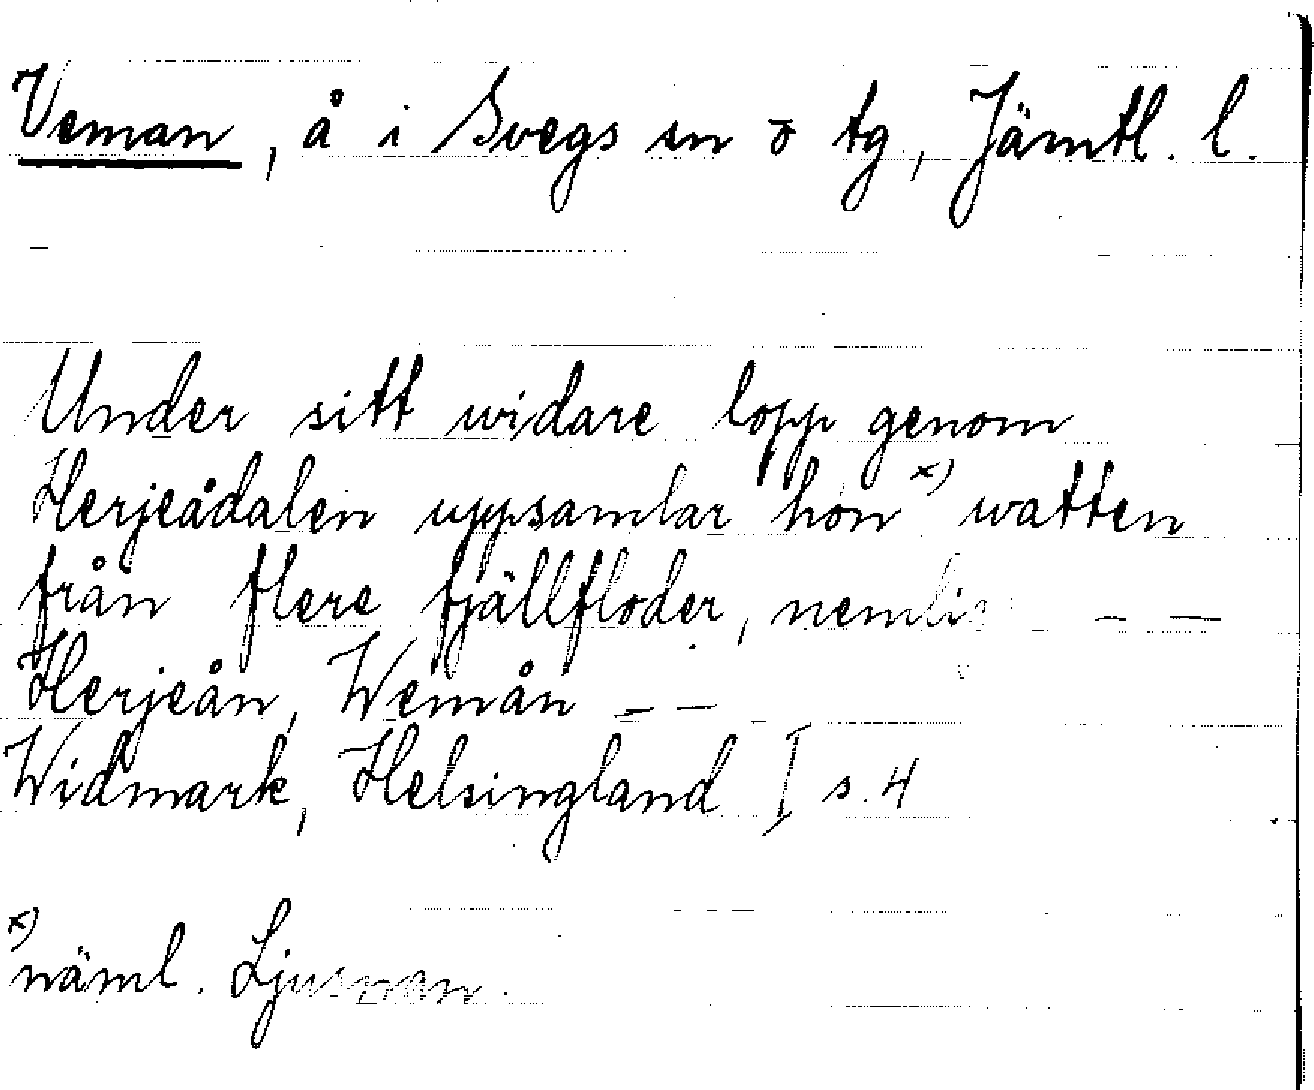 Veman, å i Svegs sn o tg, Jämtl. l.
Under sitt widare lopp genom
Herjeådalen uppsamlar hon x) watten
från flere fjällfloder, nemlig — —
Herjeån, Wemån — —
Widmark, Helsingland I s. 4
x)
näml. Ljusnan.